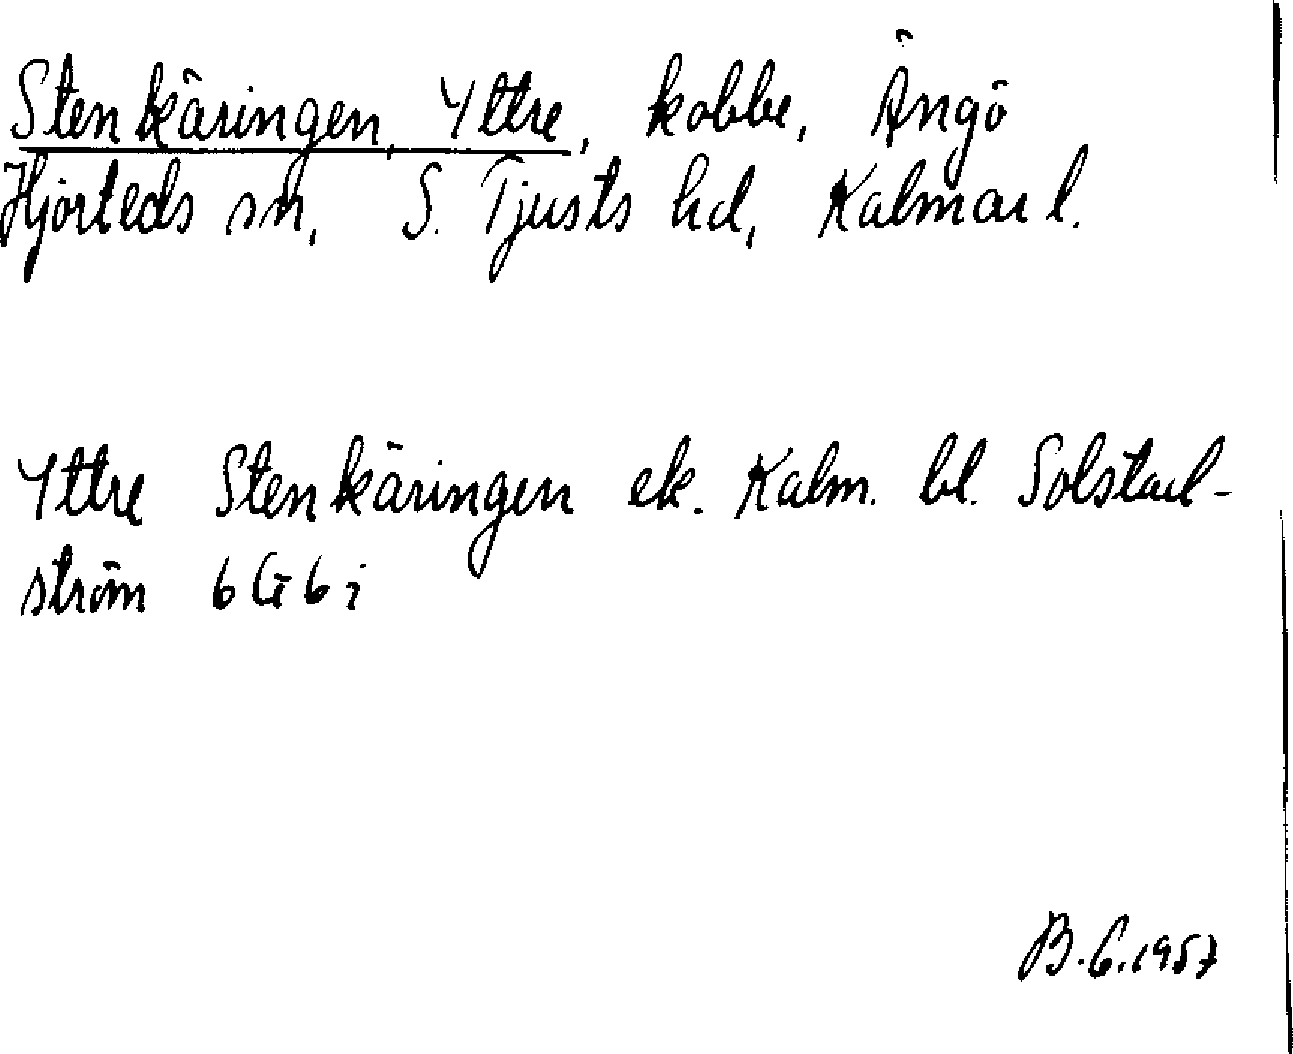 Stenkäringen, Yttre, kobbe, Ängö
Hjorteds sn, S. Tjusts hd, Kalmar l.
Yttre Stenkäringen ek. Kalm. bl. Solstad-
ström 6G6i
B.G.1957